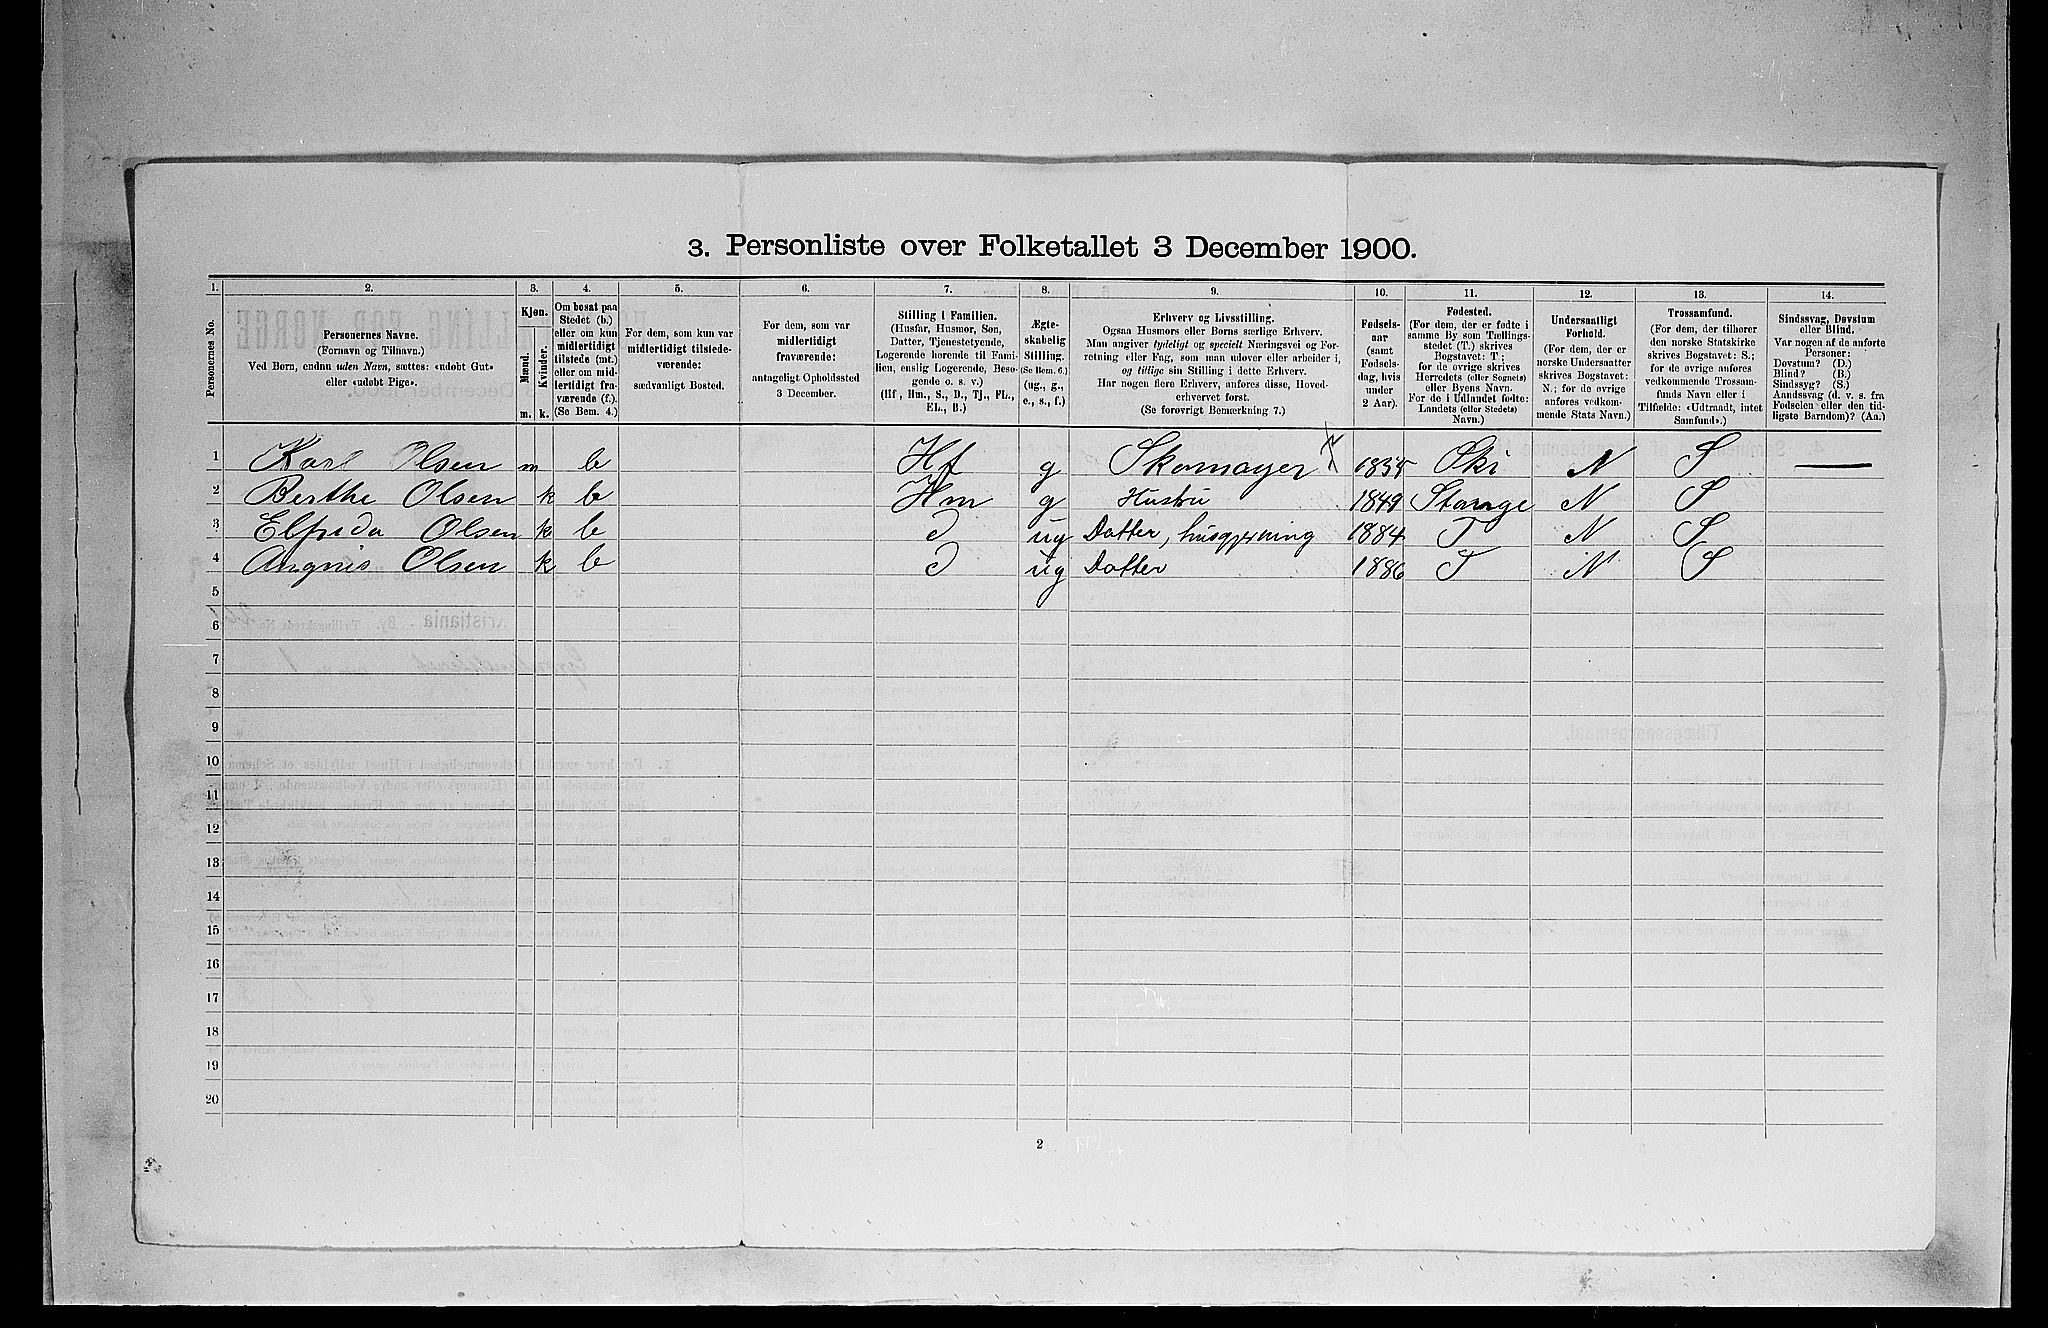 3. Personliste over Folketallet 3 December 1900.
1. 2. 3. 4. 5. 6. 7. 8. 9. 10. 11. 12. 13. 14.
Personernes No.
Personernes Navne.
(Fornavn og Tilnavn.)
Ved Børn, endnu uden Navn, sættes: «udøbt Gut»
eller «udøbt Pige».
Kjøn.
Mænd.
Kvinder.
m. k.
Om bosat paa
Stedet (b.)
eller om kun
midlertidigt
tilstede (mt.)
eller om mid-
lertidigt fra-
værende (f.).
(Se Bem. 4.)
For dem, som kun var
midlertidigt tilstede-
værende:
sædvanligt Bosted.
For dem, som var
midlertidigt
fraværende:
antageligt Opholdssted
3 December.
Stilling i Familien.
(Husfar, Husmor, Søn,
Datter, Tjenestetyende,
Logerende hørende til Fami-
lien, enslig Logerende, Besø-
gende o. s. v.)
(Hf, Hm., S., D., Tj., FL.,
EL., B.)
Ægte-
skabelig
Stilling.
(Se Bem. 6.)
(ug., g.,
e., s., f.)
Erhverv og Livsstilling.
Ogsaa Husmors eller Børns særlige Erhverv.
Man angiver tydeligt og specielt Næringsvei og For-
retning eller Fag, som man udøver eller arbeider i,
og tillige sin Stilling i dette Erhverv.
Har nogen flere Erhverv, anføres disse, Hoved-
erhvervet først.
(Se forøvrigt Bemærkning 7.)
Fødsels-
aar
(samt
Fødsels-
dag, hvis
under
2 Aar).
Fødested.
(For dem, der er fødte i
samme By som Tællings-
stedet (T.) skrives
Bogstavet: T;
for de øvrige skrives
Herredets (eller Sognets)
eller Byens Navn.
For de i Udlandet fødte:
Landets (eller Stedets)
Navn.)
Undersaatligt
Forhold.
(For dem, der er
norske Undersaatter
skrives Bogstavet:
N.; for de øvrige
anføres vedkom-
mende Stats Navn.)
Trossamfund.
(For dem, der tilhører
den norske Statskirke
skrives Bogstavet: S.;
for de øvrige anføres
vedkommende Trossam-
funds Navn eller i
Tilfælde: «Udtraadt, intet
Samfund».)
Sindssvag, Døvstum
eller Blind.
Var nogen af de anførte
Personer:
Døvstum? (D.)
Blind? (B.)
Sindssyg? (S.)
Aandssvag (d. v. s. fra
Fødselen eller den tid-
ligste Barndom)? (Aa.)
1 Karl Olsen m b Hf g Skomayer 1855 Øki N S —
2 Berthe Olsen k b Hm g Hustru 1849 Stange N S
3 Elfrida Olsen k b D ug Datter, husgjerning 1884 T N S
4 Angnis Olsen k b D ug Datter 1886 T N S
5
6
7
8
9
10
11
12
13
14
15
16
17
18
19
20
2